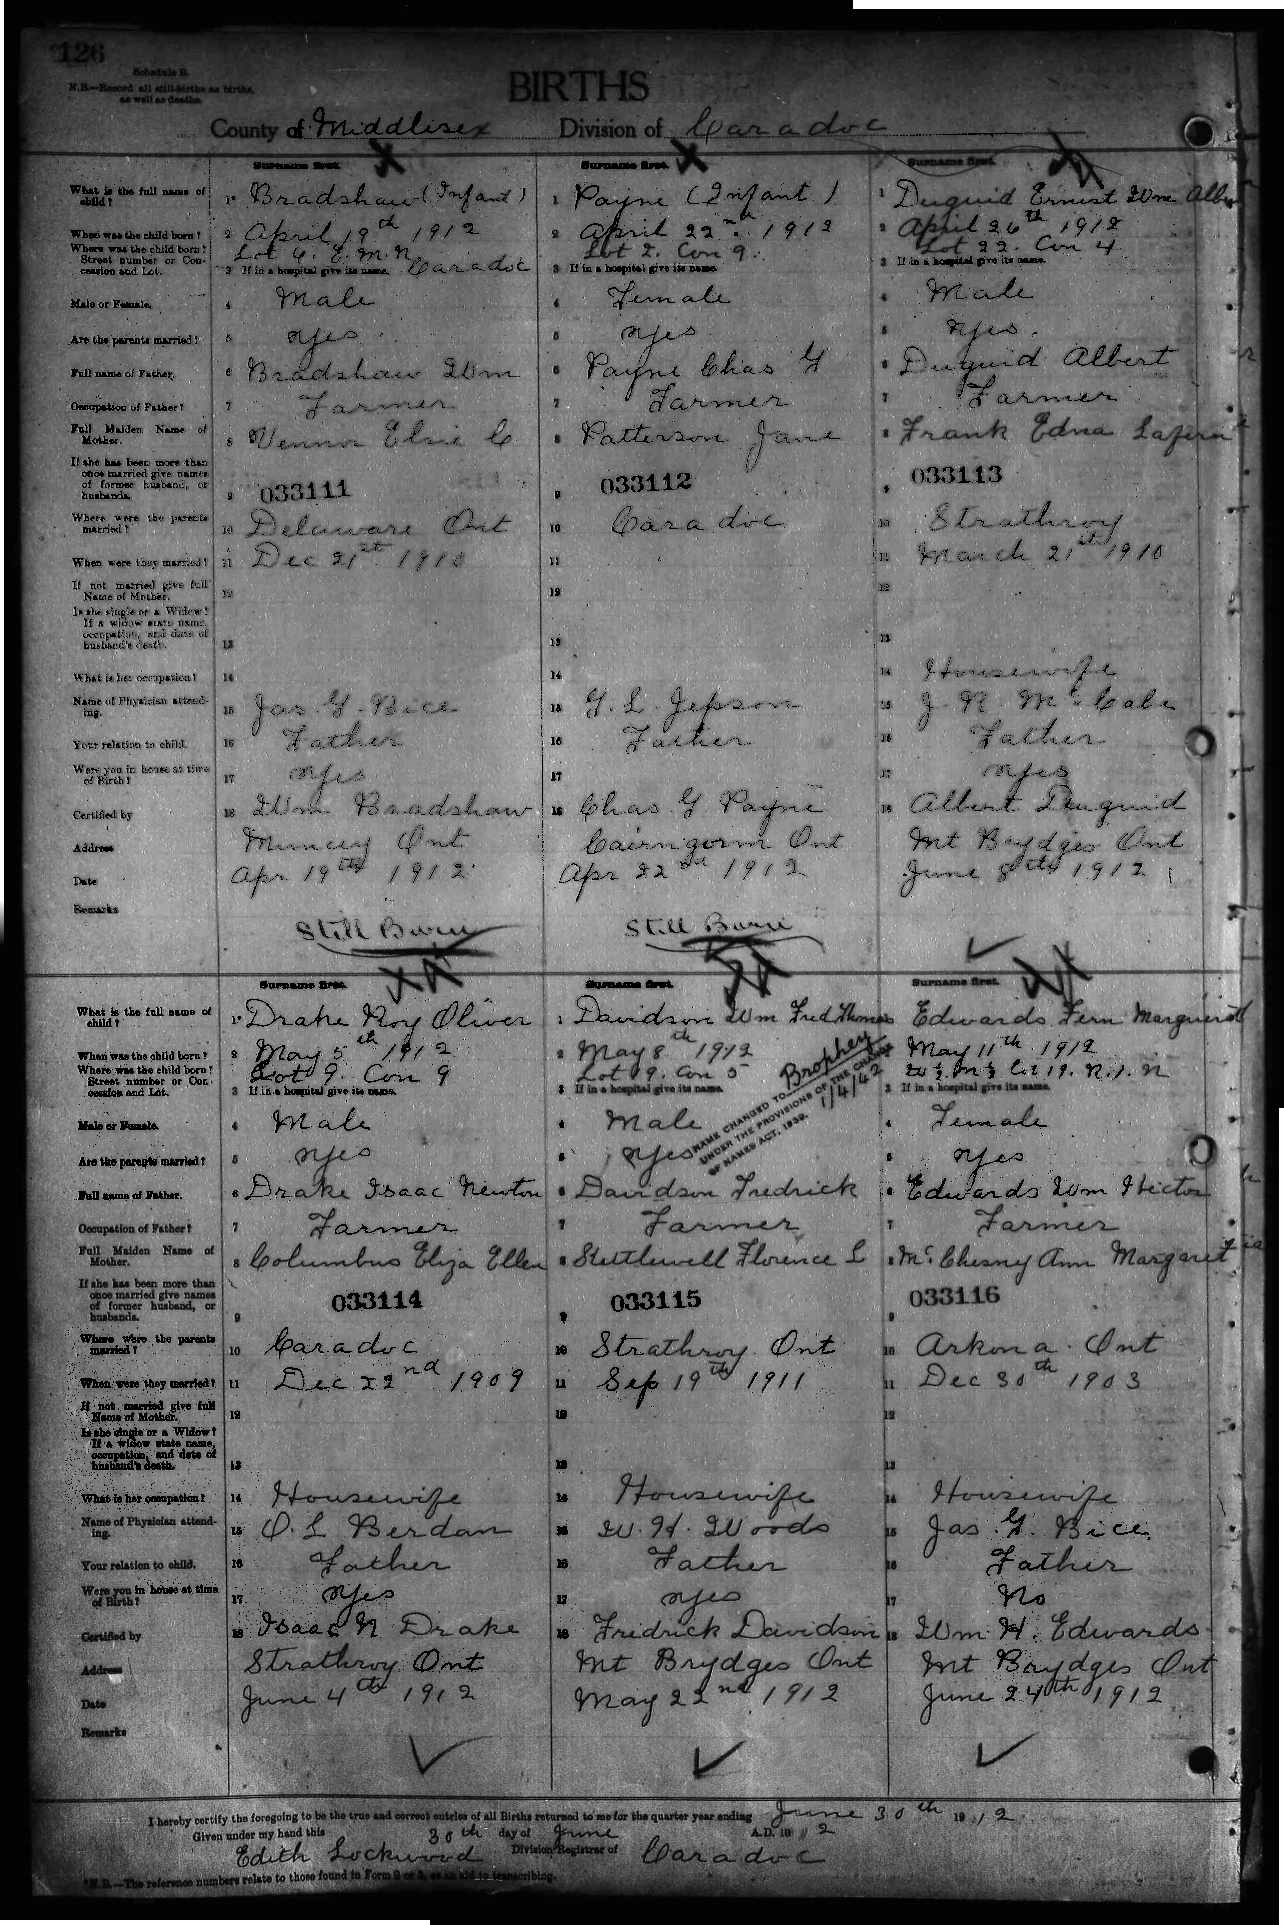 126
Schedule B.
N.B.—Record all still-births as births,
as well as deaths.
BIRTHS
County of Middlesex Division of Caradoc
Surname first. Surname first. Surname first.
What is the full name of child? 1 Bradshaw (Infant) 1 Payne (Infant) 1 Duguid Ernest Wm
When was the child born? 2 April 19th 1912 2 April 22nd 1912 2 April 26th 1912
Where was the child born? Street number or Concession and Lot. Lot 6. Lot 2. Con 9. Lot 22. Con 4
3 If in a hospital give its name. Caradoc 3 If in a hospital give its name. 3 If in a hospital give its name.
Male or Female. 4 Male 4 Female 4 Male
Are the parents married? 5 yes 5 yes 5 yes.
Full name of Father. 6 Bradshaw Wm 6 Payne Chas G 6 Duguid Albert
Occupation of Father? 7 Farmer 7 Farmer 7 Farmer
Full Maiden Name of Mother. 8 Vennor Elsie C 8 Patterson Jane 8 Frank Edna
If she has been more than once married give names of former husband, or husbands. 9 033111 9 033112 9 033113
Where were the parents married? 10 Delaware Ont 10 Caradoc 10 Strathroy
When were they married? 11 Dec 21st 11 11 March 21th 1910
If not married give full Name of Mother. 12 12 12
Is she single or a Widow? If a widow state name, occupation, and date of husband's death. 13 13 13
What is her occupation? 14 14 14 Housewife
Name of Physician attending. 15 Jas. G. Bice 15 G. L. Jepson 15 J. R. McCabe
Your relation to child. 16 Father 16 Father 16 Father
Were you in house at time of Birth? 17 yes 17 17 yes
Certified by 18 Wm Bradshaw 18 Chas G Payne 18 Albert Duguid
Address Muncey Ont Cairngorm Ont Mt Brydges Ont
Date Apr 19th 1912 Apr 22nd 1912 June 8th 1912
Remarks
Still Born Still Born
Surname first. Surname first. Surname first.
What is the full name of child? 1 Drake Roy Oliver 1 Davidson Wm Fred Thomas Edwards Fern
When was the child born? 2 May 5th 1912 2 May 8th 1912 May 11th 1912
Where was the child born? Street number or Concession and Lot. Lot 9. Con 9 Lot 9. Con 5
3 If in a hospital give its name. 3 If in a hospital give its name. 3 If in a hospital give its name.
NAME CHANGED TO Brophey
UNDER THE PROVISIONS OF THE CHANGE
OF NAMES ACT, 1939. 1/4/42
Male or Female. 4 Male 4 Male 4 Female
Are the parents married? 5 yes 5 yes 5 yes
Full name of Father. 6 Drake Isaac Newton 6 Davidson Fredrick 6 Edwards Wm Hector
Occupation of Father? 7 Farmer 7 Farmer 7 Farmer
Full Maiden Name of Mother. 8 Columbus Eliza Ellen 8 Florence L 8 McChesny Ann Margaret
If she has been more than once married give names of former husband, or husbands. 9 033114 9 033115 9 033116
Where were the parents married? 10 Caradoc 10 Strathroy Ont 10 Arkona Ont
When were they married? 11 Dec 22nd 1909 11 Sep 19th 1911 11 Dec 30th 1903
If not married give full Name of Mother. 12 12 12
Is she single or a Widow? If a widow state name, occupation, and date of husband's death. 13 13 13
What is her occupation? 14 Housewife 14 Housewife 14 Housewife
Name of Physician attending. 15 O. L Berdan 15 W. H. Woods 15 Jas. G. Bice
Your relation to child. 16 Father 16 Father 16 Father
Were you in house at time of Birth? 17 yes 17 yes 17 No
Certified by 18 Isaac N Drake 18 Fredrick Davidson 18 Wm. H. Edwards
Address Strathroy Ont Mt Brydges Ont Mt Brydges Ont
Date June 4th 1912 May 22nd 1912 June 24th 1912
Remarks
I hereby certify the foregoing to be the true and correct entries of all Births returned to me for the quarter year ending June 30th 1912
Given under my hand this 30th day of June A.D. 1912
Edith Lockwood Division Registrar of Caradoc
*N.B.—The reference numbers relate to those found in Form 2 or 3, as an aid to transcribing.